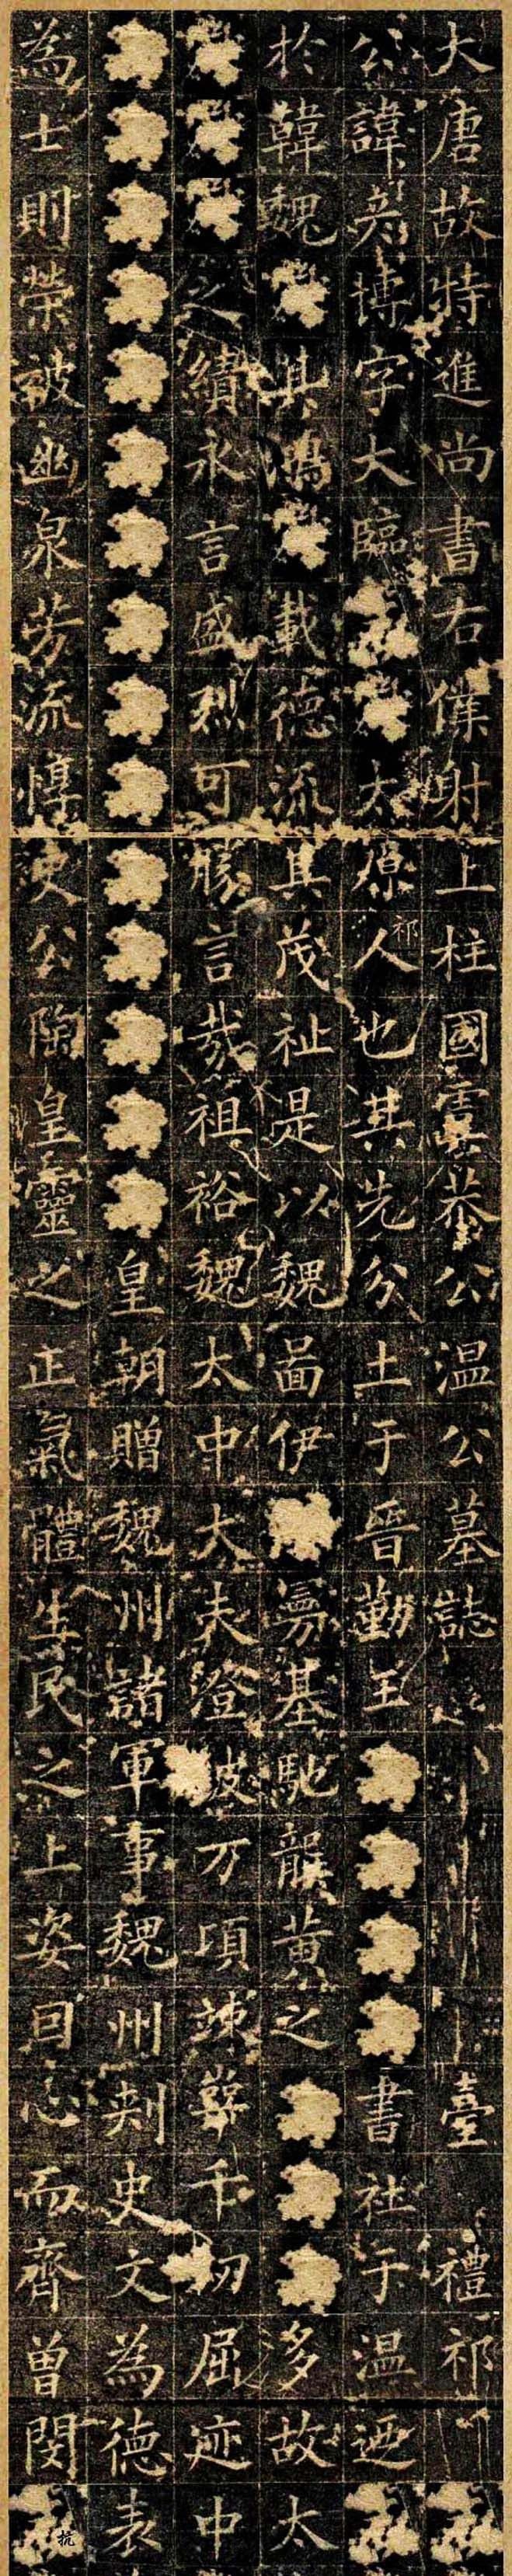 大唐故特進尚書右僕射上柱國虞恭公温公墓誌 臺 禮祁
公諱彦博字大臨 太原祁人也其先分土于晉勤王 書社于温迺
於韓魏 其鴻 載德流其茂祉是以魏啚伊 㝱基馳龍黄之 多故太
之績永言盛烈可勝言哉祖裕魏太中大夫澄波万頃竦幹千仞屈迹中
皇朝贈魏州諸軍事魏州刾史文為德表
為士則榮被幽泉芳流惇史公陶皇靈之正氣體生民之上姿回心而齊曾閔 抗